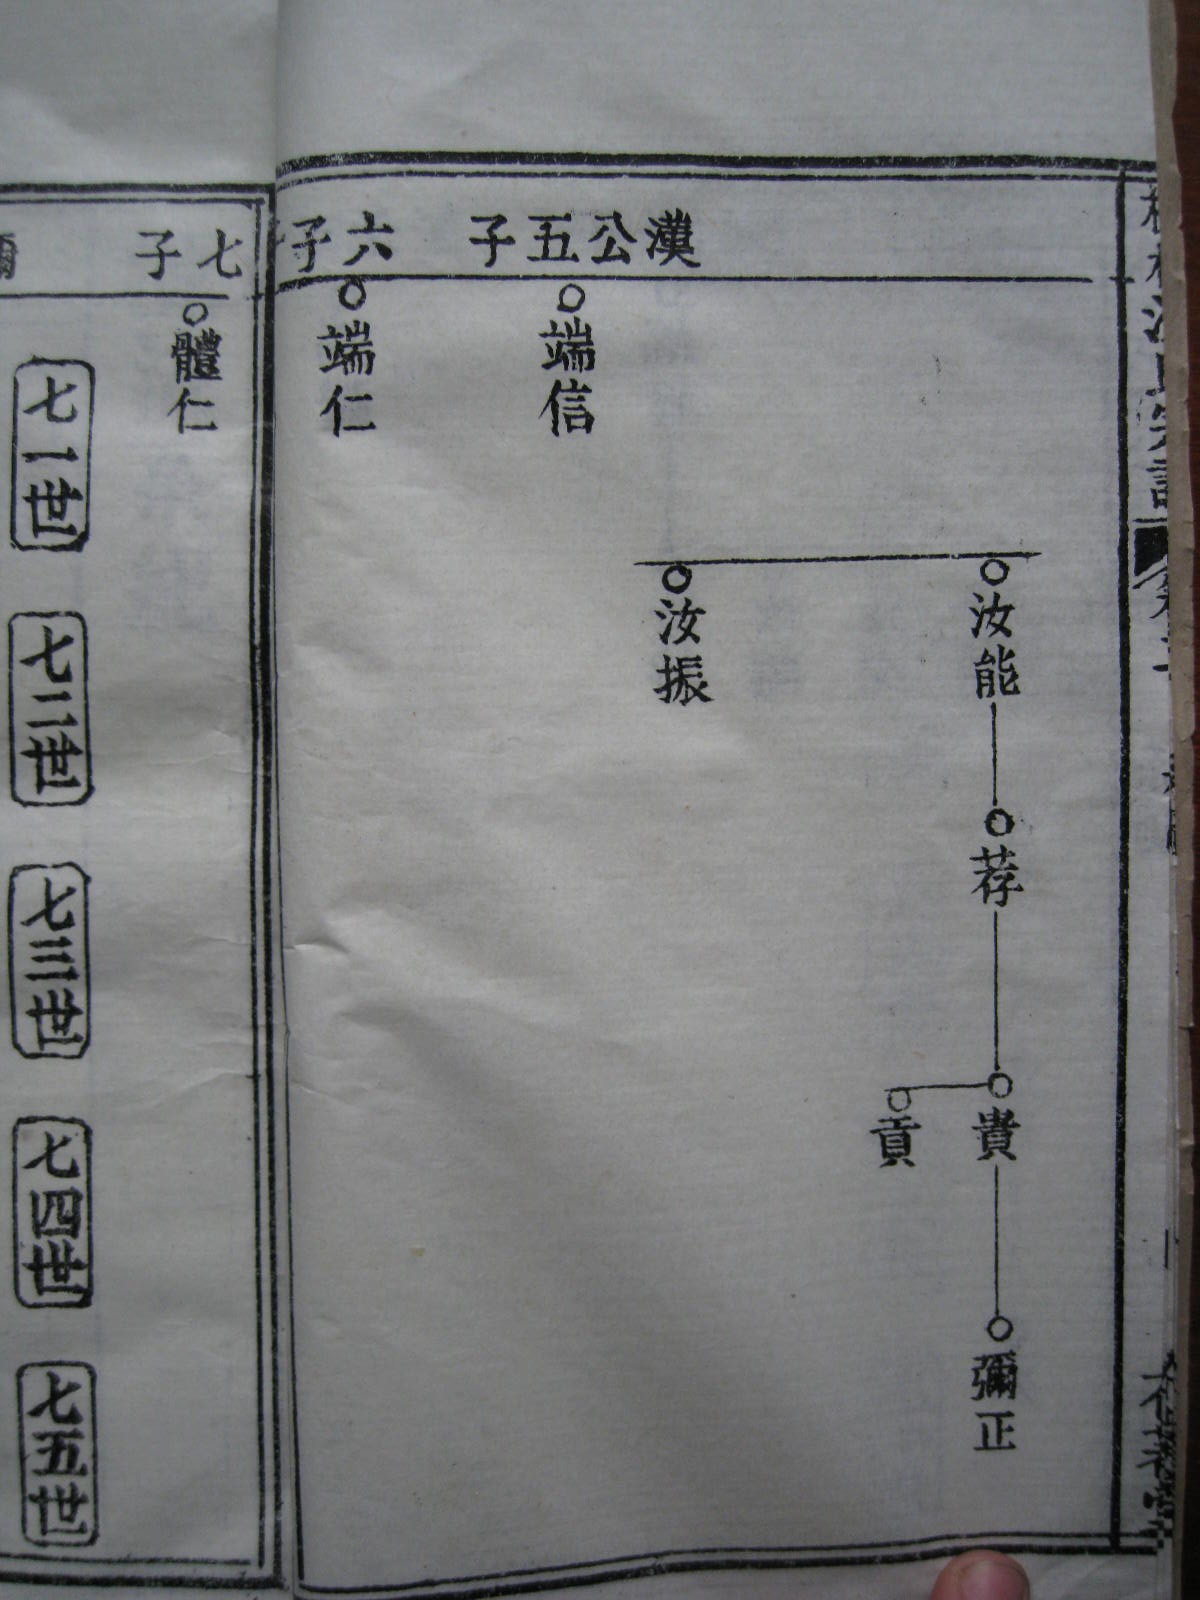 漢公五子
六子
七子
端信
端仁
體仁
汝能
汝振
荐
貴
貢
彌正
七一世
七二世
七三世
七四世
七五世